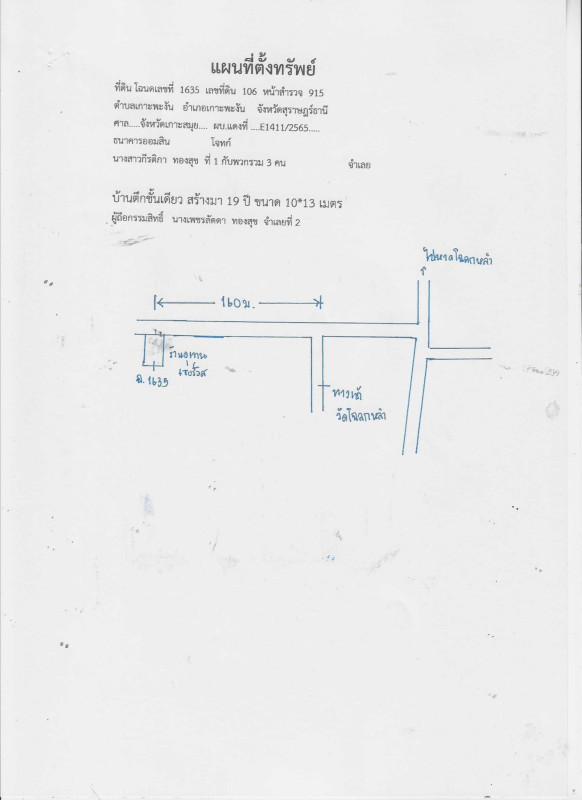 แผนที่ตั้งทรัพย์
ที่ดิน โฉนดเลขที่ 1635 เลขที่ดิน 106 หน้าสำรวจ 915
ตำบลเกาะพะงัน อำเภอเกาะพะงัน จังหวัดสุราษฎร์ธานี
ศาล.....จังหวัดเกาะสมุย.... ผบ.แดงที่ ....E1411/2565.....
ธนาคารออมสิน โจทก์
นางสาวกีรติกา ทองสุข ที่ 1 กับพวกรวม 3 คน จำเลย
บ้านตึกชั้นเดียว สร้างมา 19 ปี ขนาด 10*13 เมตร
ผู้ถือกรรมสิทธิ์ นางเพชรลัดดา ทองสุข จำเลยที่ 2
ไปหาดโฉลกหลำ
160 ม.
ร้าน
เซอร์วิส
ฉ. 1635
ทางเข้า
วัดโฉลกหลำ